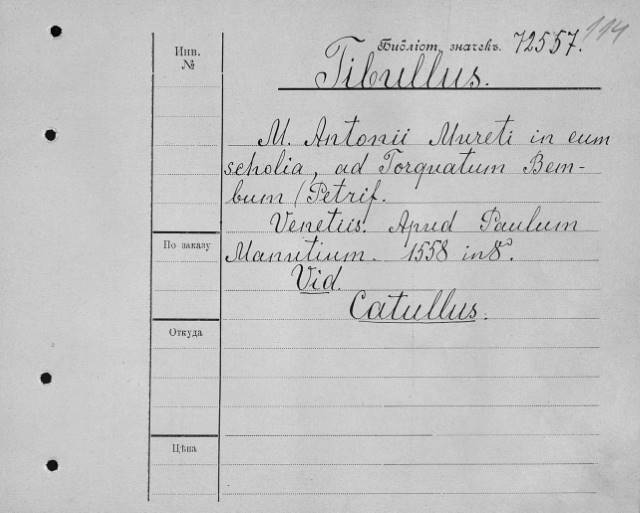 114
Инв. №
Библіот. значекъ. 72557.
Tibullus.
M. Antonii Mureti in eum
scholia, ad Torquatum Bem-
bum (Petrif.
Venetiis. Apud Paulum
По заказу
Manutium. 1558 in 8º.
Vid.
Catullus.
Откуда
Цѣна